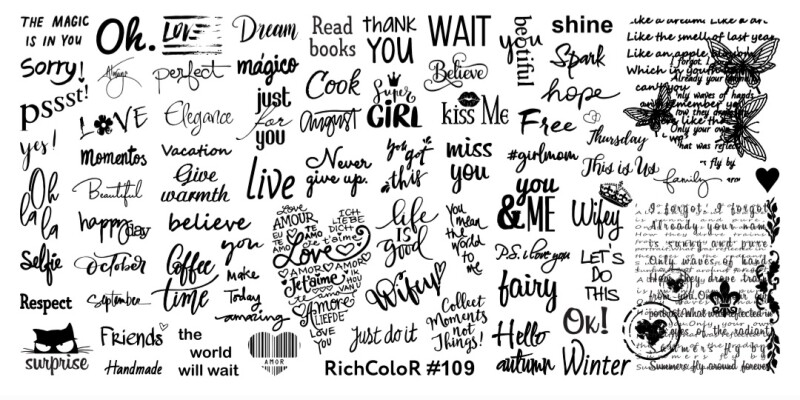 THE MAGIC
IS IN YOU
Oh.
LOVE
Dream
Read
books
thank
YOU
WAIT
you
beautiful
shine
Sorry!
Always
perfect
mágico
Cook
Super
GIRL
Believe
Spark
hope
pssst!
LOVE
Elegance
just
for
you
August
kiss Me
Free
Thursday
yes!
momentos
Vacation
Never
give up.
you got
this
miss
you
#girlmom
This is Us
family
Oh
la la
Beautiful
Give
warmth
live
you
&ME
Wifey
happy day
believe
LOVE
AMOUR
ICH
LIEBE
DICH
EU TE
AMO
je t'aime
Love
AMOR
Je t'aime
Amore
LIEFDE
LOVE
YOU
life
IS
good
you
mean
the
world
to
me
P.S. i love you
LET'S
DO
THIS
Selfie
October
Coffee
time
you
Make
Today
amazing
Wifey
fairy
Respect
September
Collect
Moments
not
Things!
OK!
surprise
Friends
Handmade
the
world
will wait
AMOR
Just do it
Hello
autumn
Winter
RichColoR #109
Like a dream. Like a
Like the smell of last year
Like an apple blossom
Which in your
can you
and remember
I forgot I forgot
Already your name
is sunny and pure
Only waves of hands
How they drove train
from you.
What was reflected in
eyes of the radiant
Summers fly around forever